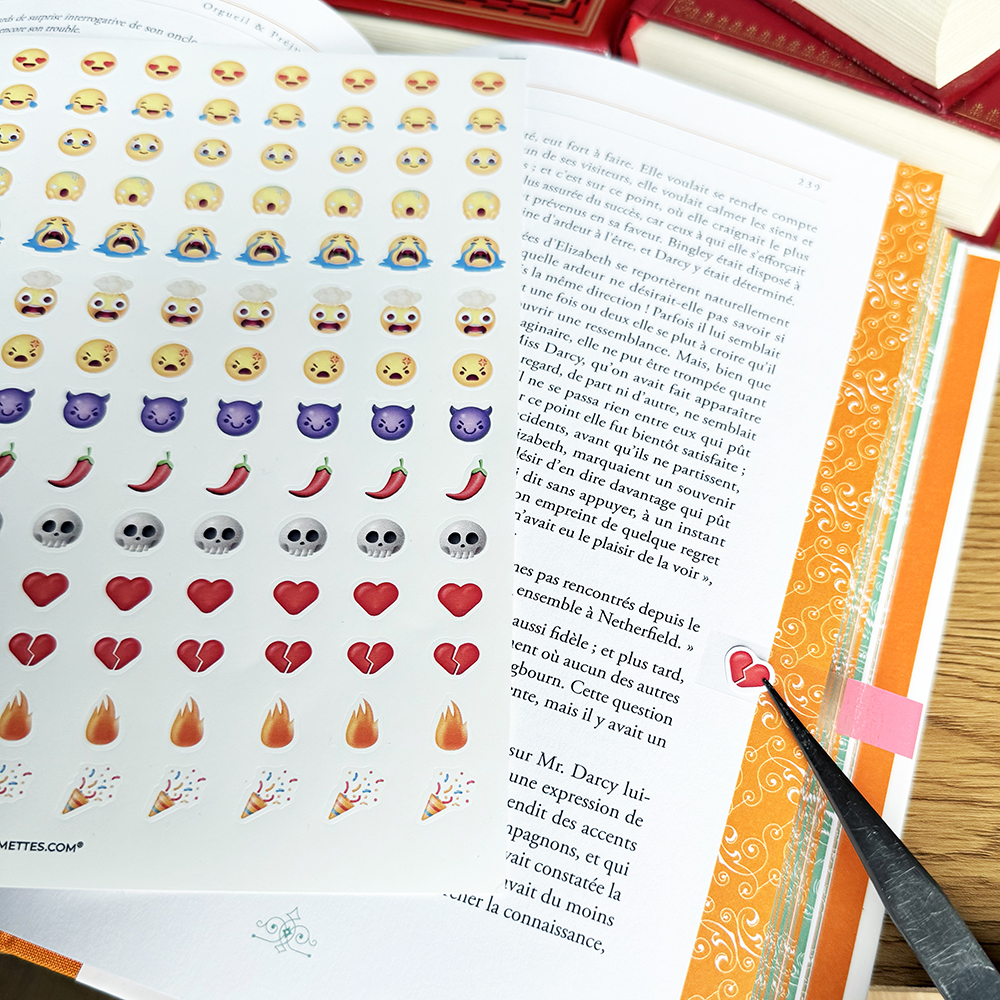 Orgueil & Préj
ards de surprise interrogative de son oncle
encore son trouble.
239
té, eut fort à faire. Elle voulait se rendre compte
un de ses visiteurs, elle voulait calmer les siens et
s ; et c'est sur ce point, où elle craignait le plus
lus assurée du succès, car ceux à qui elle s'efforçait
t prévenus en sa faveur. Bingley était disposé à
ine d'ardeur à l'être, et Darcy y était déterminé.
ées d'Elizabeth se reportèrent naturellement
quelle ardeur ne désirait-elle pas savoir si
is la même direction ! Parfois il lui semblait
t une fois ou deux elle se plut à croire qu'il
ouvrir une ressemblance. Mais, bien que
aginaire, elle ne put être trompée quant
liss Darcy, qu'on avait fait apparaître
regard, de part ni d'autre, ne semblait
l ne se passa rien entre eux qui pût
r ce point elle fut bientôt satisfaite ;
cidents, avant qu'ils ne partissent,
izabeth, marquaient un souvenir
désir d'en dire davantage qui pût
i dit sans appuyer, à un instant
on empreint de quelque regret
n'avait eu le plaisir de la voir »,
nes pas rencontrés depuis le
ensemble à Netherfield. »
aussi fidèle ; et plus tard,
nent où aucun des autres
gbourn. Cette question
nte, mais il y avait un
sur Mr. Darcy lui-
une expression de
endit des accents
mpagnons, et qui
vait constatée la
avait du moins
cher la connaissance,
METTES.COM®